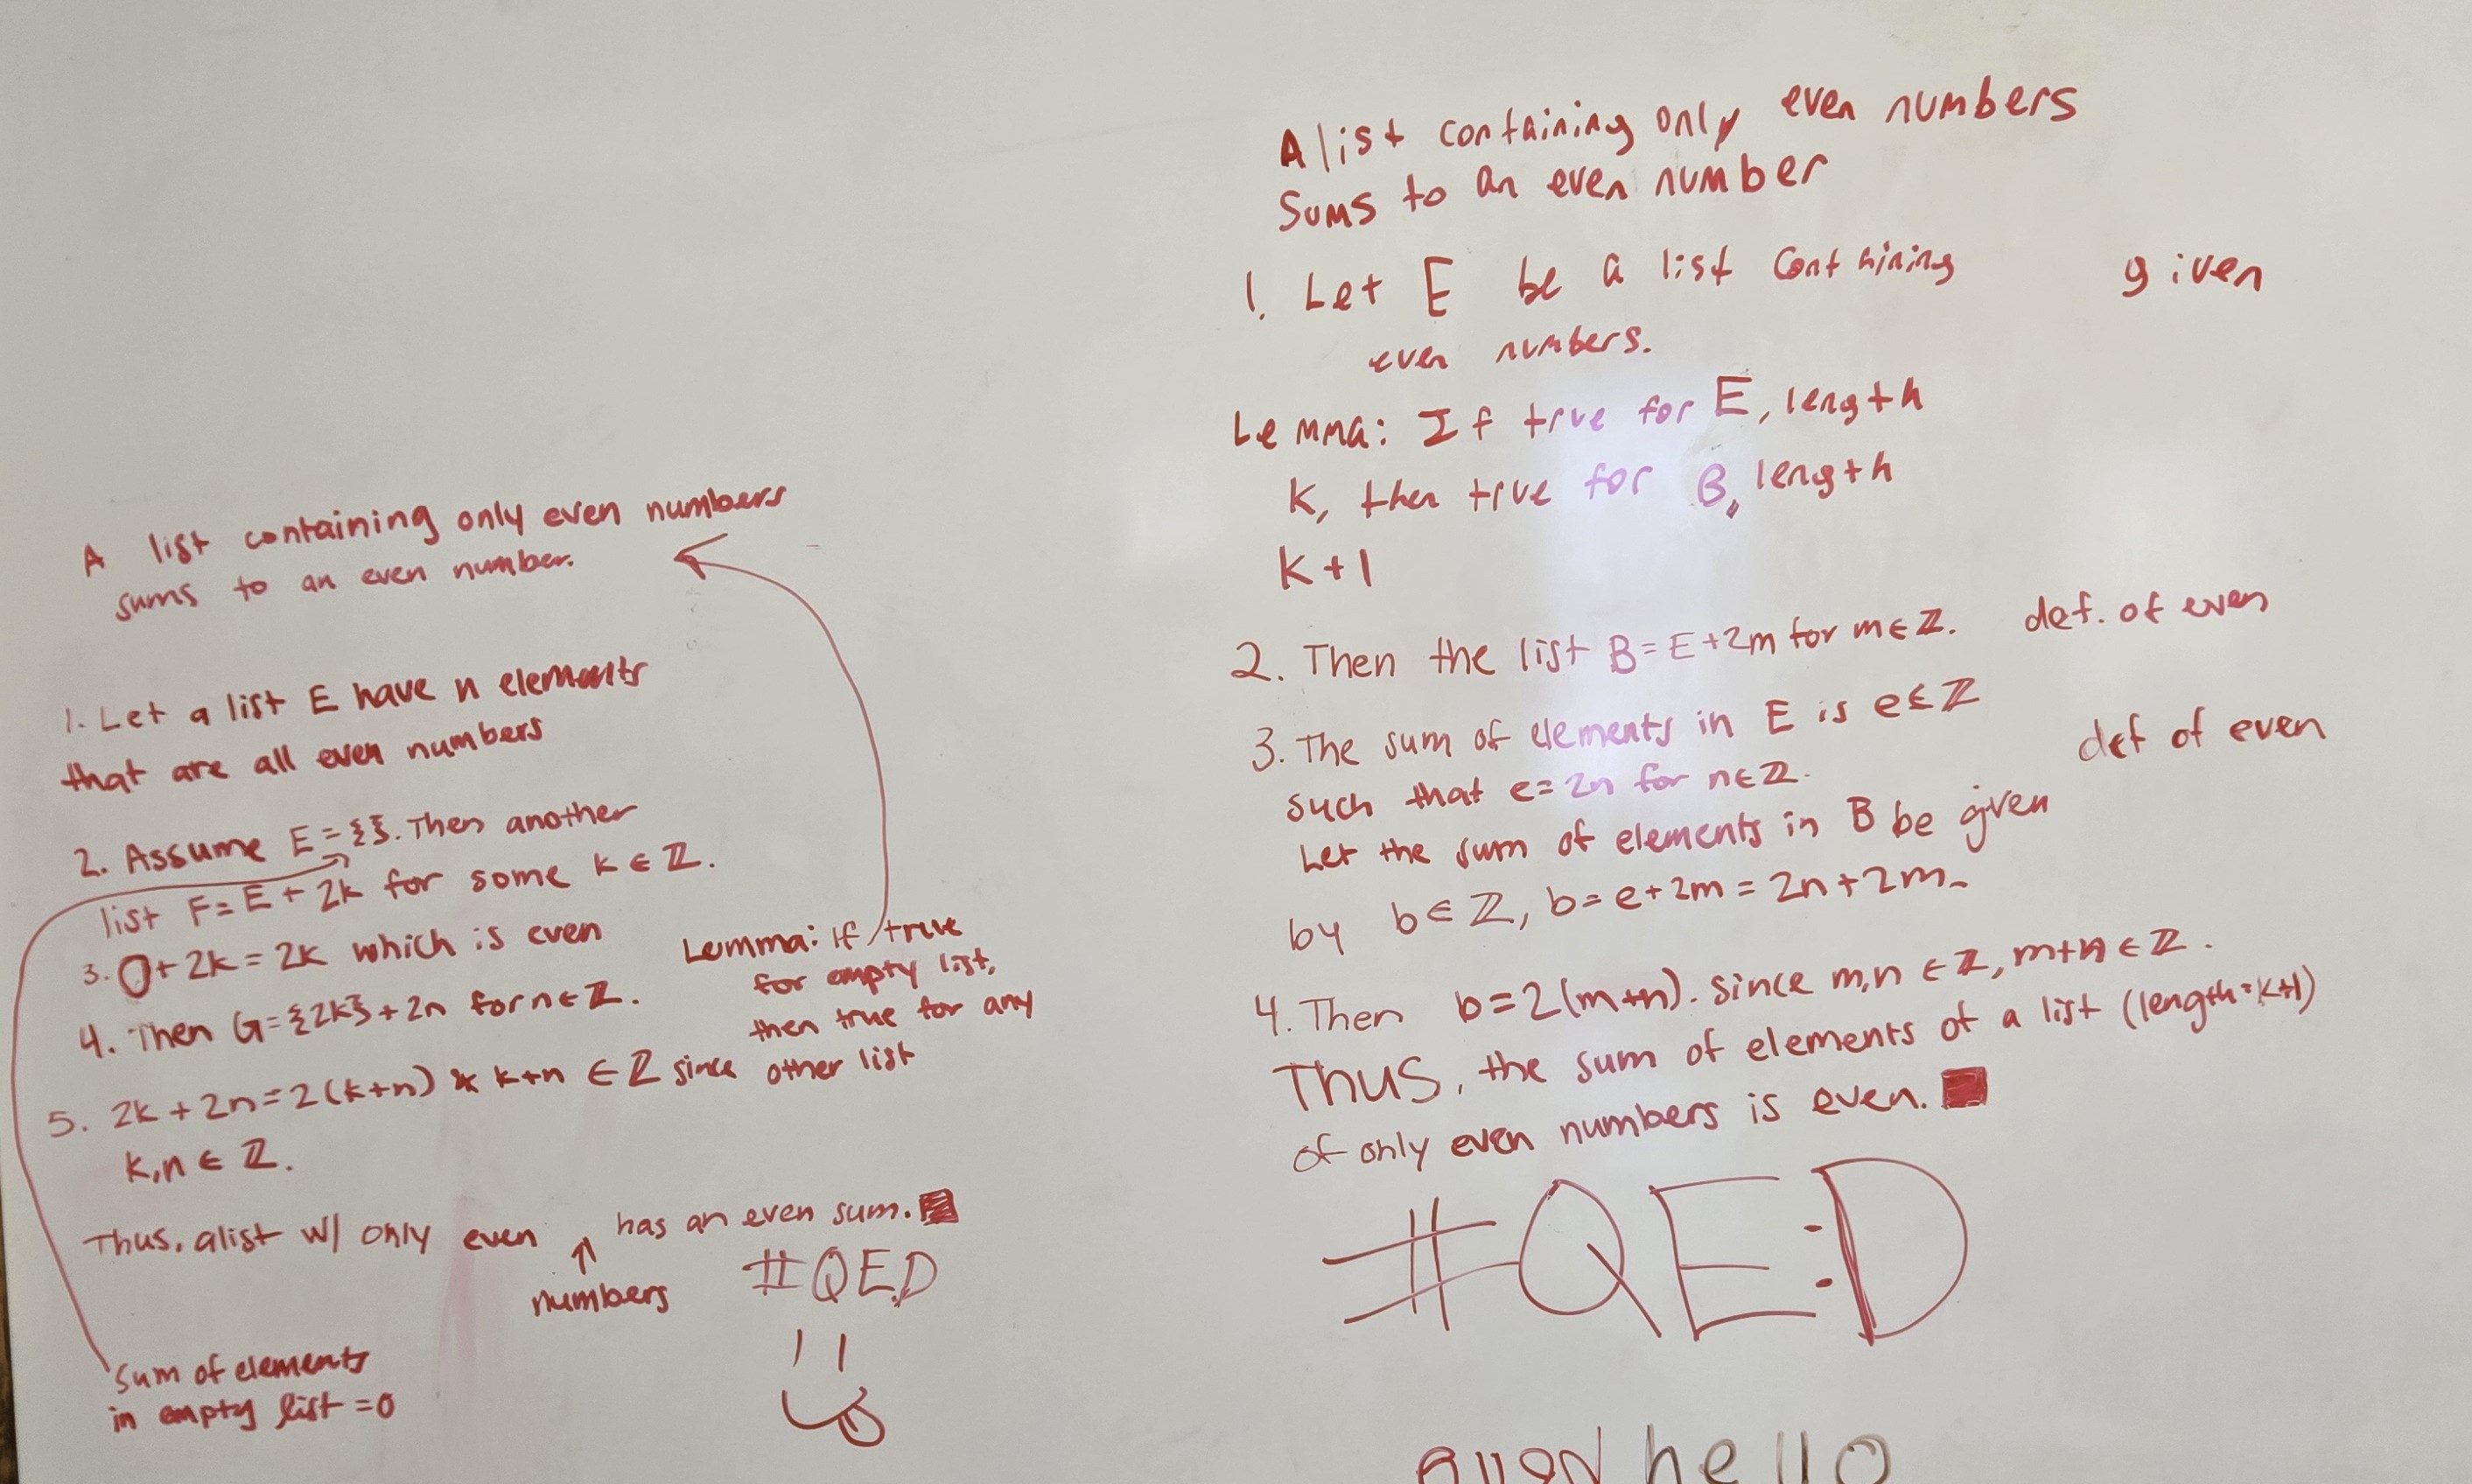 A list containing only even numbers
sums to an even number.
1. Let a list E have n elements
that are all even numbers
2. Assume E = {}. Then another
list F = E + 2k for some k ∈ ℤ.
3. 0 + 2k = 2k which is even
4. Then G = {2k} + 2n for n ∈ ℤ.
5. 2k + 2n = 2(k+n) & k+n ∈ ℤ since
k,n ∈ ℤ.
Lemma: if true
for empty list,
then true for any
other list
Thus, a list w/ only even ↑ has an even sum. ■
numbers
#QED
Sum of elements
in empty list = 0
A list containing only even numbers
Sums to an even number
1. Let E be a list containing given
even numbers.
Lemma: If true for E, length
k, then true for B, length
k+1
2. Then the list B = E + 2m for m ∈ ℤ. def. of even
3. The sum of elements in E is e ∈ ℤ
such that e = 2n for n ∈ ℤ. def of even
Let the sum of elements in B be given
by b ∈ ℤ, b = e + 2m = 2n + 2m.
4. Then b = 2(m+n). Since m,n ∈ ℤ, m+n ∈ ℤ.
Thus, the sum of elements of a list (length = k+1)
of only even numbers is even. ■
#QE:D
hello